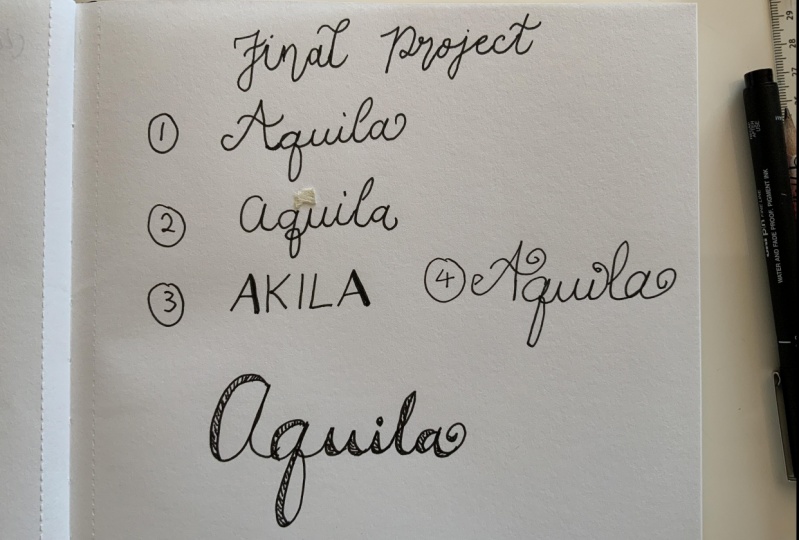 Final Project
① Aquila
② aquila
③ AKILA
④ Aquila
Aquila
WATER AND FADE PROOF PIGMENT INK
29
28